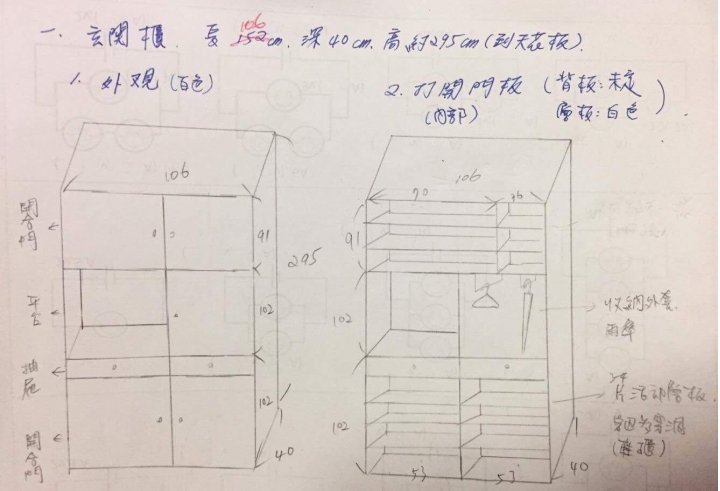 一、玄關櫃. 長106cm. 深40cm. 高約295cm(到天花板).
1. 外观(白色)
2. 打開門板(內部)
(背板:未定
層板:白色)
106
開合門
91
295
平台
102
抽屜
102
開合門
40
106
70
36
91
102
收納外套.
雨傘
片活動層板.
(鞋櫃)
102
53
53
40